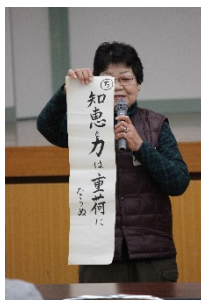 ち
知恵と力は重荷に
ならぬ